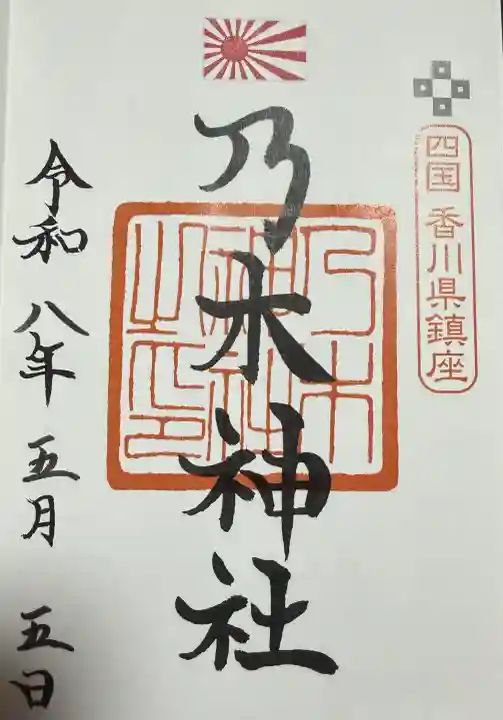 四国 香川県鎮座
乃木神社
乃木
神社
之印
令和 八年 五月 五日